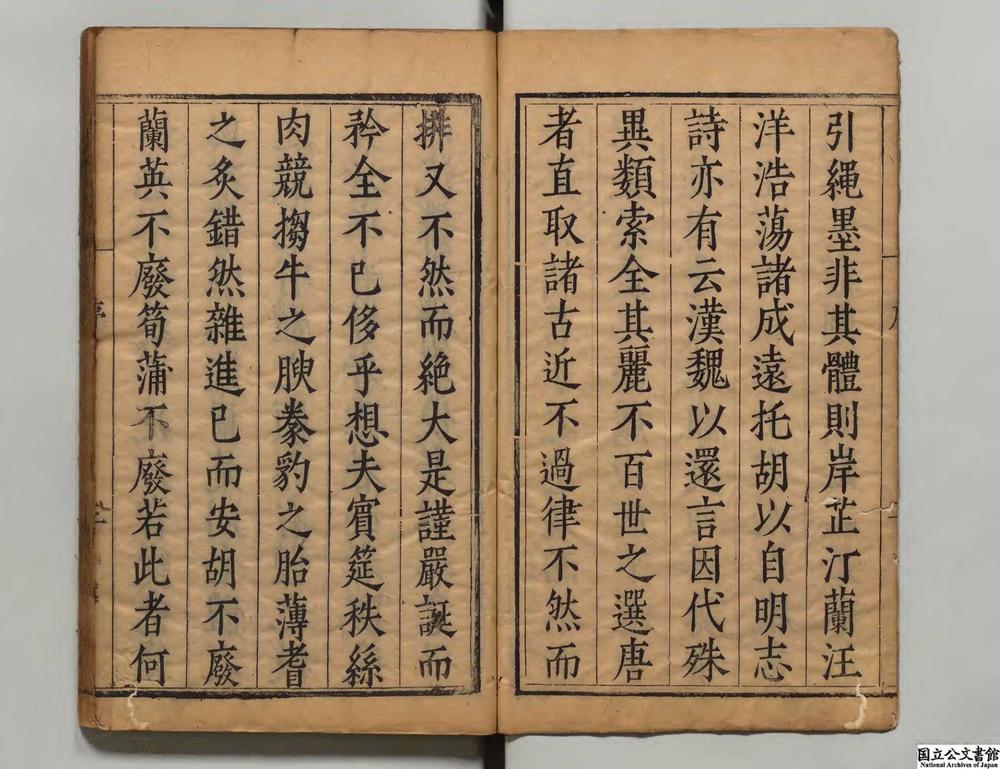 引繩墨非其體則岸芷汀蘭汪
洋浩蕩諸成遠托胡以自明志
詩亦有云漢魏以還言因代殊
異類索全其麗不百世之選唐
者直取諸古近不過律不然而
排又不然而絶大是謹嚴誕而
矜全不已侈乎想夫賓筵秩絲
肉競搊牛之腴豢豹之胎薄耆
之炙錯然雜進已而安胡不廢
蘭英不廢筍蒲不廢若此者何
序
国立公文書館
National Archives of Japan